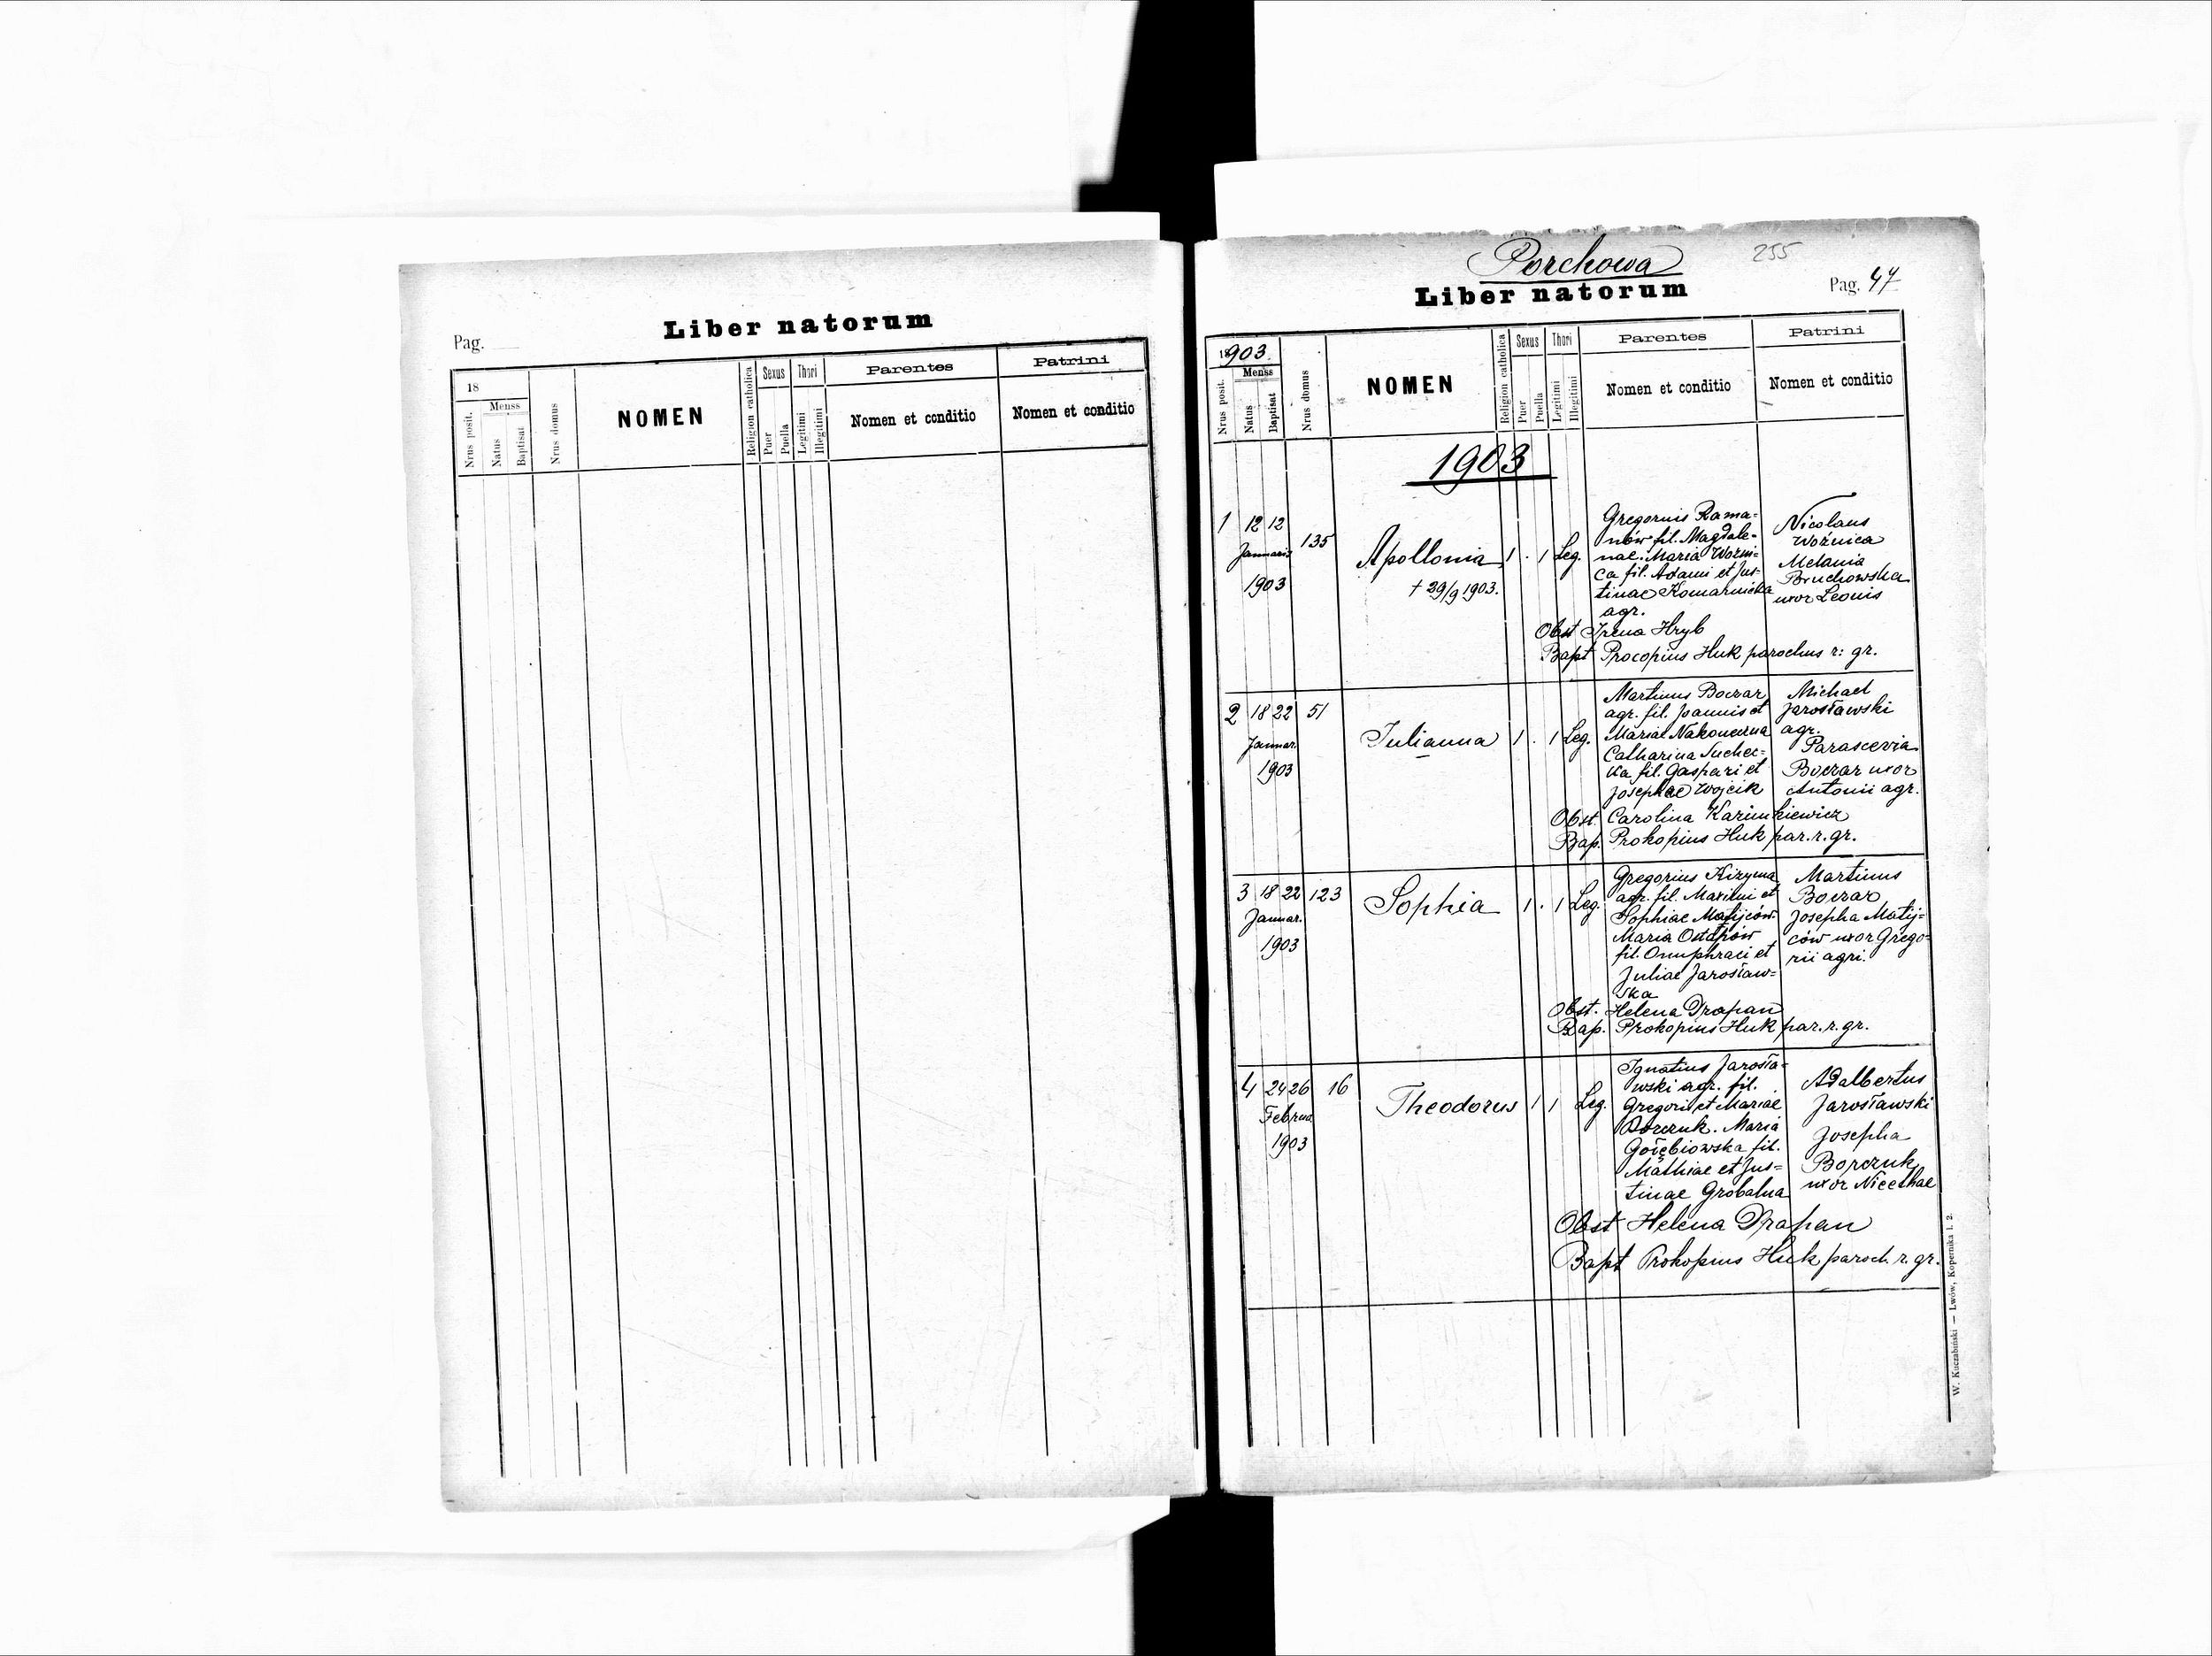 Liber natorum
Pag.
18
Menss
Nrus posit.
Natus
Baptisat
Nrus domus
NOMEN
Religion catholica
Sexus
Puer
Puella
Thori
Legitimi
Illegitimi
Parentes
Nomen et conditio
Patrini
Nomen et conditio
Porchowa
255
Liber natorum
Pag. 47
1903.
Menss
Nrus posit.
Natus
Baptisat
Nrus domus
NOMEN
Religion catholica
Sexus
Puer
Puella
Thori
Legitimi
Illegitimi
Parentes
Nomen et conditio
Patrini
Nomen et conditio
1903
1 12 12
Januaris
1903
135
Apollonia
† 29/9 1903.
1 . 1 Leg.
Gregorius Roma=
nów fil. Magdale-
nae. Maria Woźni=
ca fil. Adami et Jus-
tinae Komarnicka
agr.
Nicolaus
Woźnica
Melania
Bruchowska
uxor Leonis
Obst Irena Hryb
Bapt Procopius Huk parochus r: gr.
2 18 22 51
Januar.
1903
Julianna
1 . 1 Leg.
Martinus Boczar
agr. fil. Joannis et
Mariae Nakoneczna
Catharina Suchec=
ka fil. Gaspari et
Josephae Wojcik
Michael
Jarosławski
agr.
Parascevia
Boczar uxor
Antonii agr.
Obst. Carolina Kazimkiewicz
Bap. Prokopius Huk par. r. gr.
3 18 22 123
Januar.
1903
Sophia
1 . 1 Leg.
Gregorius Kizyma
agr. fil. Maximi et
Sophiae Matijców
Maria Ostapów
fil. Onuphrii et
Juliae Jarosław=
ska
Martinus
Boczar
Josepha Matij=
ców uxor Grego=
rii agri.
Obst. Helena Drapan
Bap. Prokopius Huk par. r. gr.
4 24 26 16
Februa
1903
Theodorus
1 1 Leg.
Ignatius Jarosła=
wski agr. fil.
Gregorii et Mariae
Borczuk. Maria
Gołębiowska fil.
Mathiae et Jus=
tinae Grobalna
Adalbertus
Jarosławski
Josepha
Borczuk
uxor Nicethae
Obst Helena Drapan
Bapt Prokopius Huk paroch. r. gr.
W. Kuczabiński — Lwów, Kopernika l. 2.